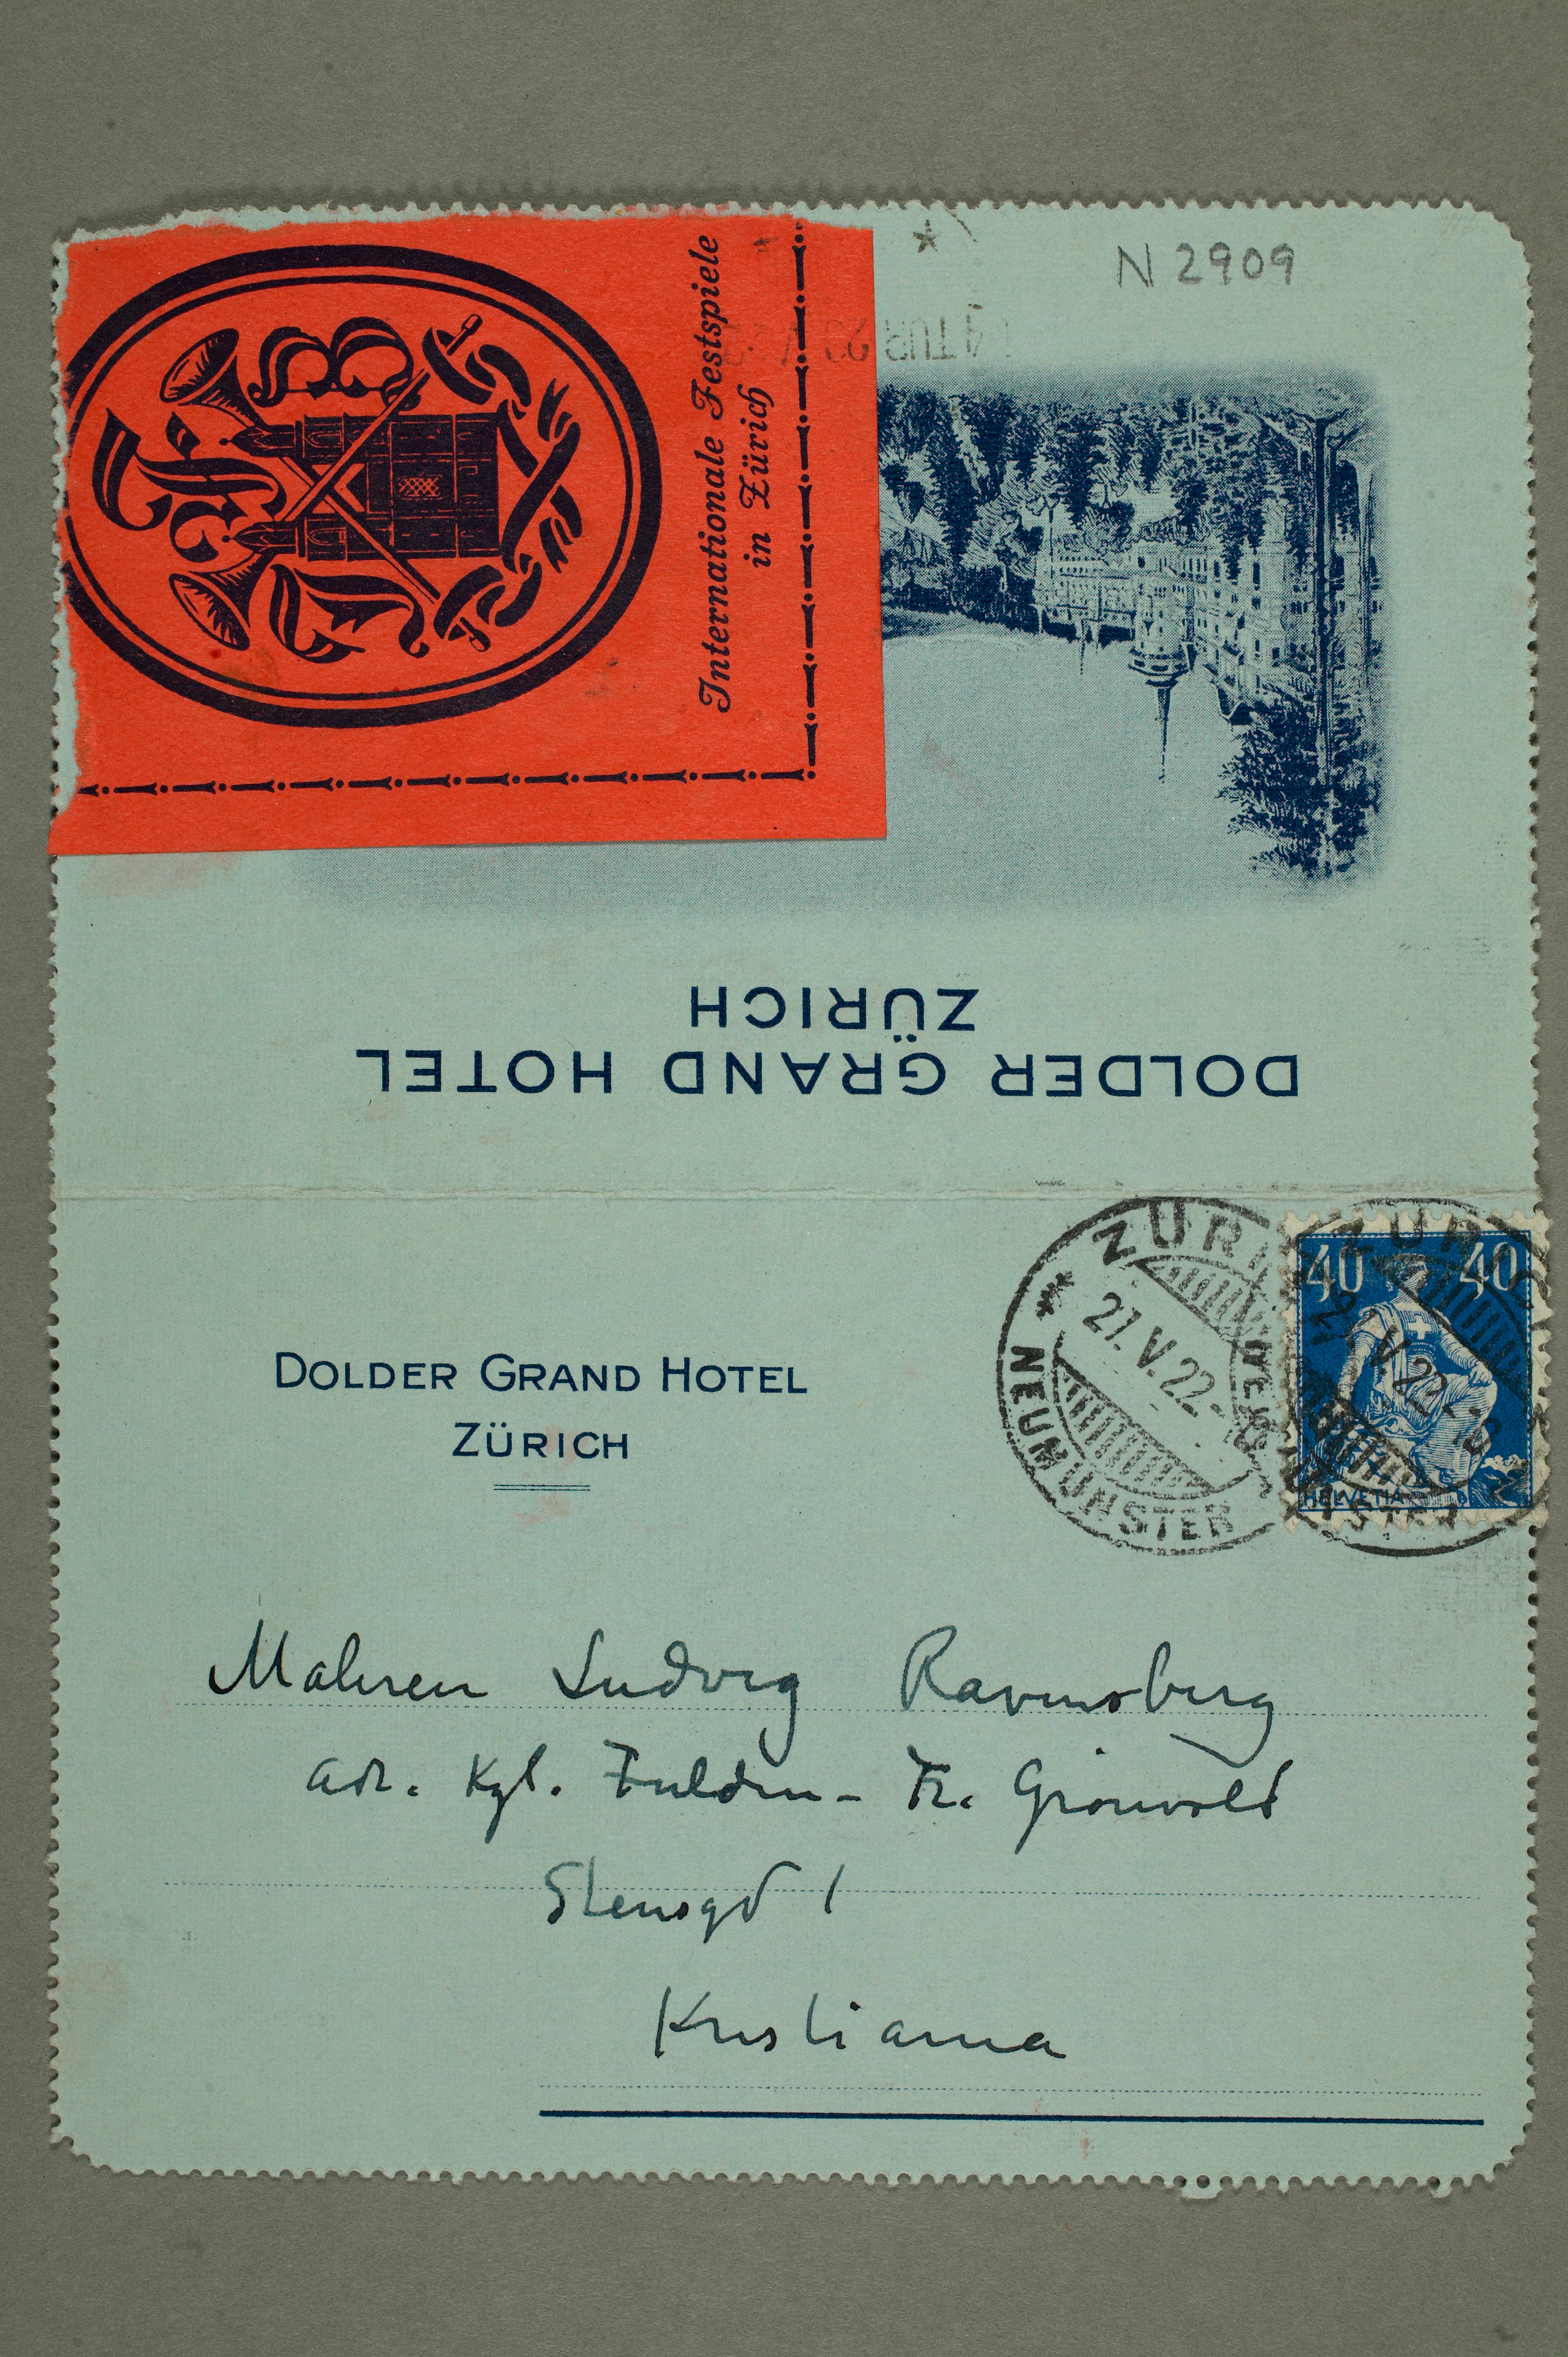 N 2909
Internationale Festspiele
in Zürich
DOLDER GRAND HOTEL
ZÜRICH
DOLDER GRAND HOTEL
ZÜRICH
ZÜRICH
21.V.22.
NEUMÜNSTER
40 40
HELVETIA
Maleren Ludvig Ravensberg
adr. Kgl. Fuldm - Fr. Grönvold
Stensgd 1
Kristiania